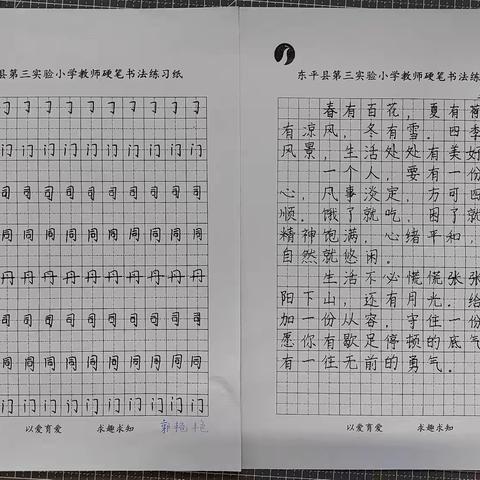 县第三实验小学教师硬笔书法练习纸
刁 刁 刁 刁 刁 刁 刁 刁 刁
门 门 门 门 门 门 门 门 门
司 司 司 司 司 司 司 司 司
同 同 同 同 同 同 同 同 同
丹 丹 丹 丹 丹 丹 丹 丹 丹
司 司 司 司 司 司 司 司 司
同 同 同 同 同 同 同 同 同
门 门 门 门 门 门 门 门 门
以爱育爱 求趣求知
东平县第三实验小学教师硬笔书法练
春有百花，夏有
有凉风，冬有雪．四季
风景，生活处处有美好
一个人，要有一份
心，凡事淡定，方可四
顺．饿了就吃，困了就
精神饱满，心绪平和，
自然就悠闲．
生活不必慌慌张张
阳下山，还有月光．给
加一份从容，守住一份
愿你有歇足停顿的底气
有一往无前的勇气．
以爱育爱 求趣求知